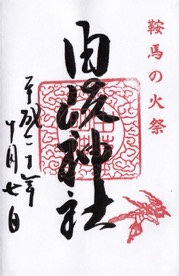 鞍馬の火祭
由岐神社
平成二十年
十月 日